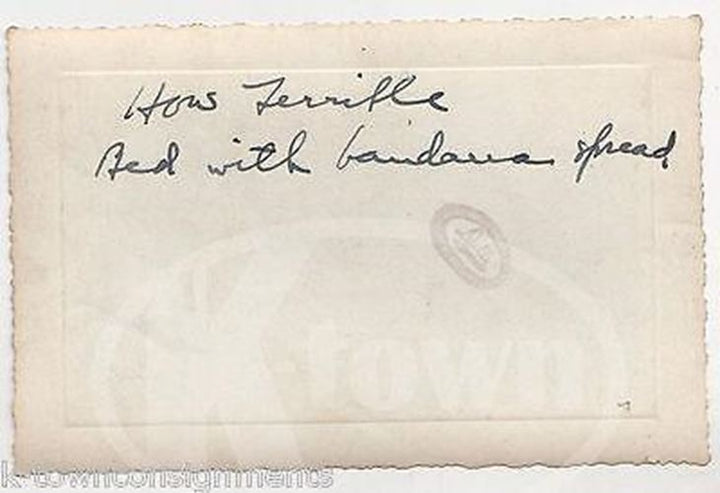 How Terrible
Bed with bandana spread
k-town
k-townconsignments